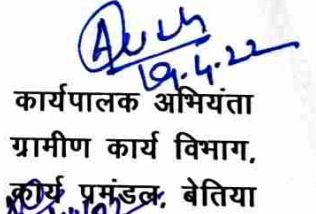 19.4.22
कार्यपालक अभियंता
ग्रामीण कार्य विभाग,
कार्य प्रमंडल, बेतिया